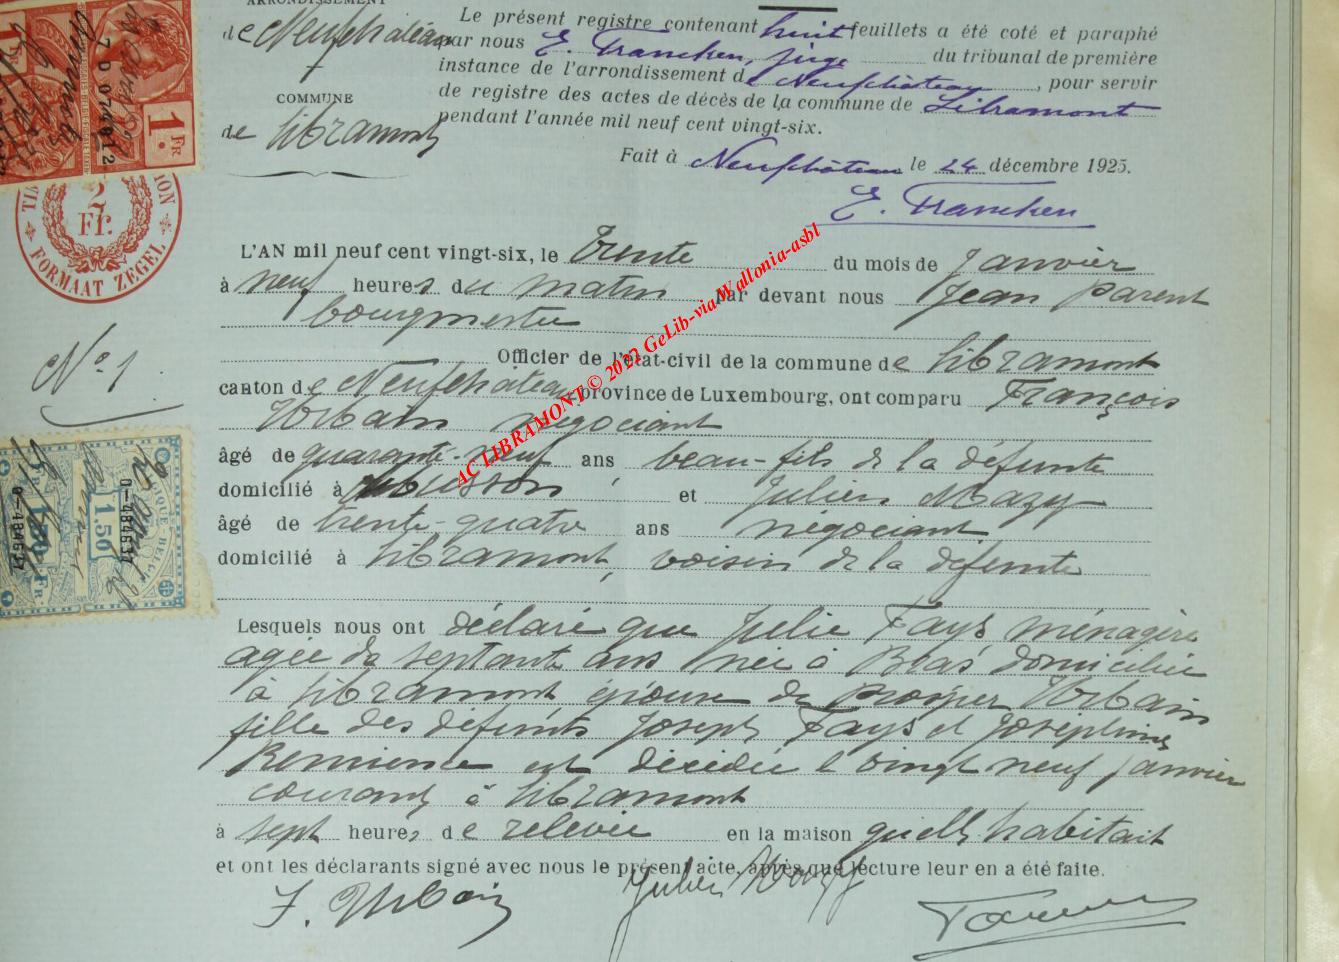 ARRONDISSEMENT
de Neufchâteau
COMMUNE
de Libramont
Le présent registre contenant huit feuillets a été coté et paraphé
par nous E. Francken, juge du tribunal de première
instance de l'arrondissement de Neufchâteau, pour servir
de registre des actes de décès de la commune de Libramont
pendant l'année mil neuf cent vingt-six.
Fait à Neufchâteau le 24 décembre 1925.
E. Francken
1 FR
70 07401 2
2
Fr.
FORMAAT ZEGEL
No 1
1.50
0-484637
L'AN mil neuf cent vingt-six, le trente du mois de Janvier
à neuf heures du matin par devant nous Jean Parent
bourgmestre
Officier de l'état-civil de la commune de Libramont
canton de Neufchâteau province de Luxembourg, ont comparu François
Urbain négociant
âgé de quarante-neuf ans beau-fils de la défunte
domicilié à Musson et Julien Mazy
âgé de trente-quatre ans négociant
domicilié à Libramont, voisin de la défunte
Lesquels nous ont déclaré que Julie Fays ménagère
agée de septante ans née à Bras domiciliée
à Libramont épouse de Prosper Urbain
fille des défunts Joseph Fays et Joséphine
est décédée le vingt neuf Janvier
courant à Libramont
à sept heures de relevée en la maison qu'elle habitait
et ont les déclarants signé avec nous le présent acte, après que lecture leur en a été faite.
F. Urbain Julien Mazy
AC LIBRAMONT © 2022 GeLib-via Wallonia-asbl